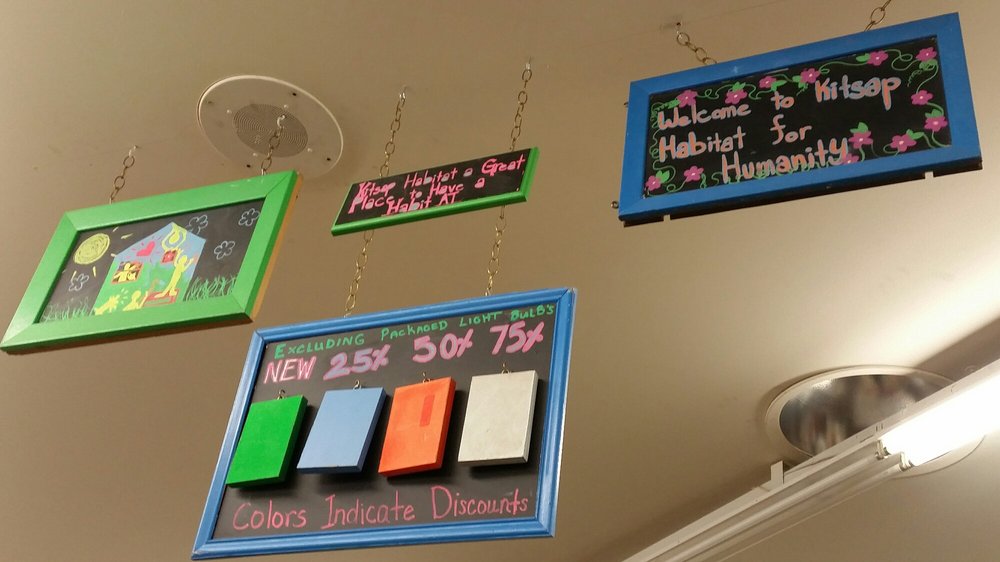 Welcome to Kitsap
Habitat for
Humanity
Kitsap Habitat a Great
Place to Have a
Habit AT
Excluding Packaged Light Bulb's
NEW 25% 50% 75%
Colors Indicate Discounts